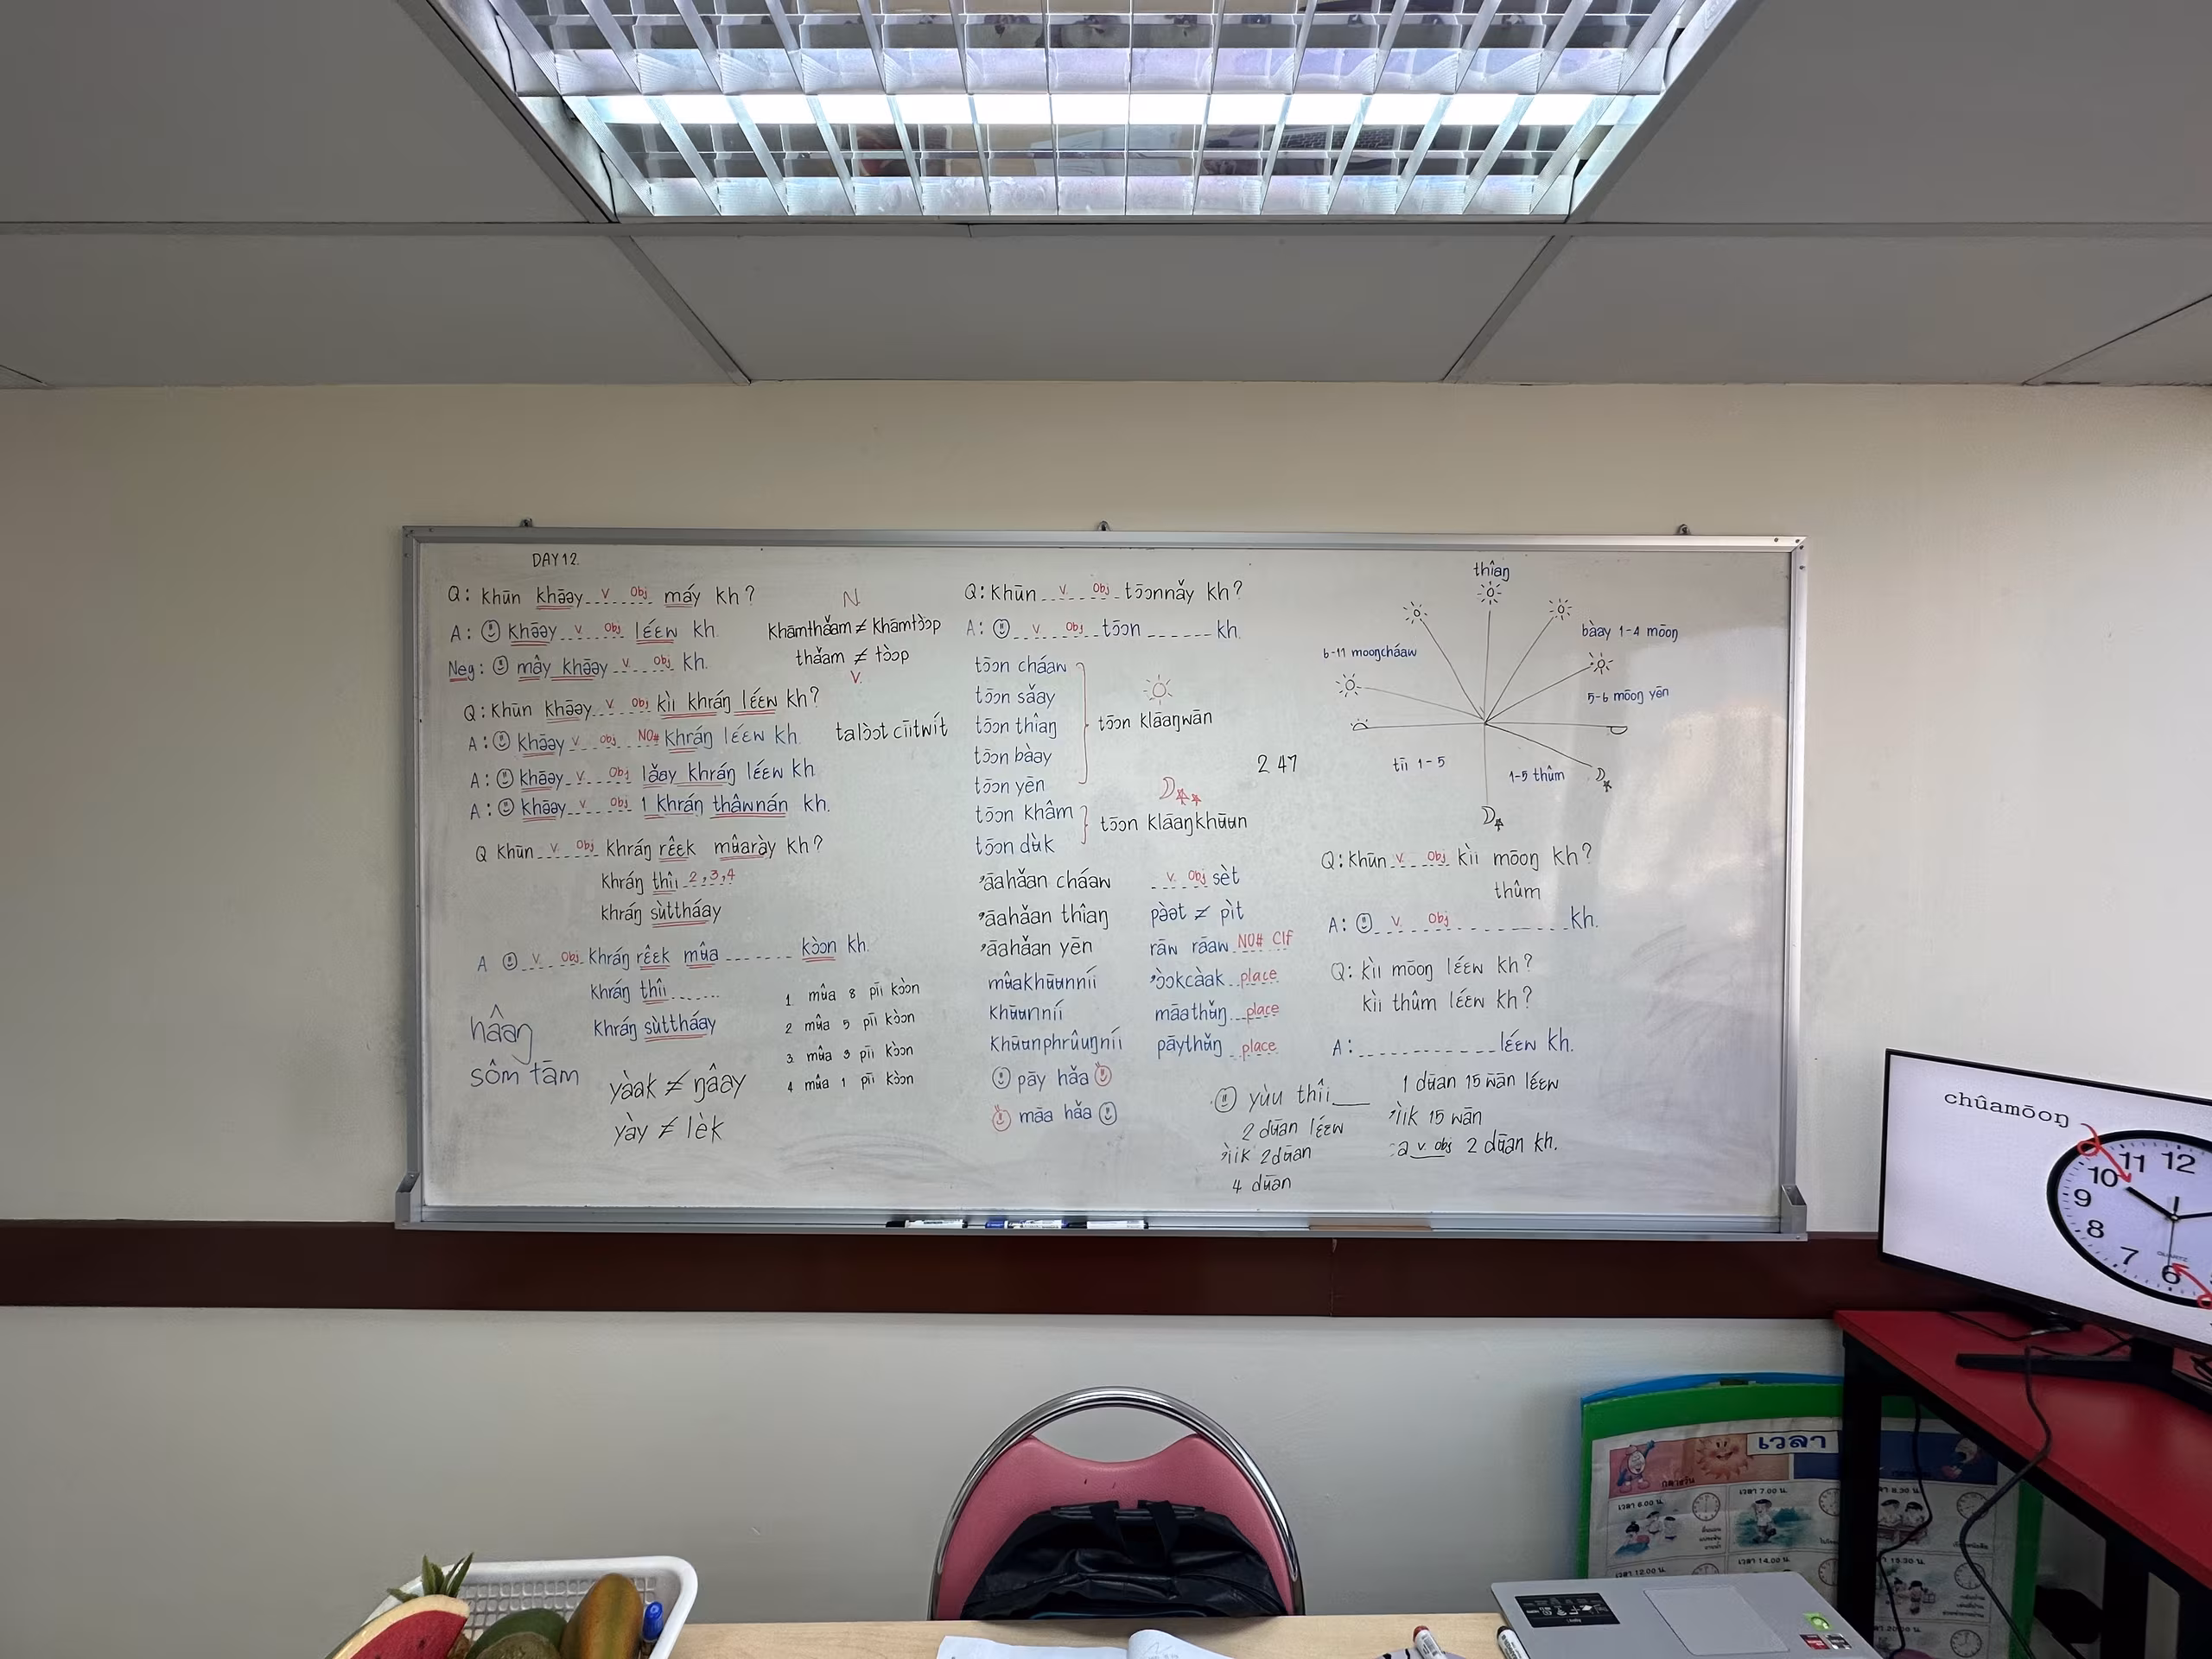 DAY 12.
Q: Khūn khə̄əy V Obj máy kh?
A: khə̄əy V Obj lɛ́ɛw kh.
Neg: mây khə̄əy V Obj kh.
N
Khāmthǎam ≠ Khāmtɔ̀ɔp
thǎam ≠ tɔ̀ɔp
V.
Q: Khūn khə̄əy V Obj kìi khráŋ lɛ́ɛw kh?
A: khə̄əy V Obj NO# khráŋ lɛ́ɛw kh.
A: khə̄əy V Obj lǎay khráŋ lɛ́ɛw kh
A: khə̄əy V Obj 1 khráŋ thâwnán kh.
talɔ̀ɔt cīitwít
Q Khūn V Obj khráŋ rɛ̂ɛk mʉ̂arày kh?
khráŋ thîi 2,3,4
khráŋ sùttháay
A V Obj khráŋ rɛ̂ɛk mʉ̂a kɔ̀ɔn kh.
khráŋ thîi
khráŋ sùttháay
hâaŋ
sôm tām
1. mʉ̂a 8 pīi kɔ̀ɔn
2 mʉ̂a 5 pīi kɔ̀ɔn
3. mʉ̂a 3 pīi kɔ̀ɔn
4 mʉ̂a 1 pīi kɔ̀ɔn
yàak ≠ ŋâay
yày ≠ lèk
Q: Khūn V Obj tɔ̄ɔnnǎy kh?
A: V Obj tɔ̄ɔn kh.
tɔ̄ɔn cháaw
tɔ̄ɔn sǎay
tɔ̄ɔn thîaŋ
tɔ̄ɔn bàay
tɔ̄ɔn yēn
tɔ̄ɔn klāaŋwān
tɔ̄ɔn khâm
tɔ̄ɔn dʉ̀k
tɔ̄ɔn klāaŋkhʉ̄ʉn
2 47
ʼāahǎan cháaw
ʼāahǎan thîaŋ
ʼāahǎan yēn
mʉ̂akhʉ̄ʉnníi
khʉ̄ʉnníi
khʉ̄ʉnphrûŋníi
pāy hǎa
māa hǎa
V Obj sèt
pə̀ət ≠ pìt
rāw rāaw NO# Clf
ʼɔ̀ɔkcàak place
māathʉ̌ŋ place
pāythʉ̌ŋ place
yùu thîi
2 dʉ̄an lɛ́ɛw
ʼìik 2 dʉ̄an
4 dʉ̄an
thîaŋ
bàay 1-4 mōoŋ
6-11 mooŋcháaw
5-6 mōoŋ yēn
tīi 1-5
1-5 thûm
Q: Khūn V Obj kìi mōoŋ kh?
thûm
A: V Obj kh.
Q: kìi mōoŋ lɛ́ɛw kh?
kìi thûm lɛ́ɛw kh?
A: lɛ́ɛw kh.
1 dʉ̄an 15 wān lɛ́ɛw
ʼìik 15 wān
V Obj 2 dʉ̄an kh.
chûamōoŋ
10 11 12
9
8
7
6
QUARTZ
เวลา
กลางวัน
เวลา 6.00 น.
เวลา 7.00 น.
8.30 น.
เวลา 12.00
เวลา 14.00 น.
15.30 น.